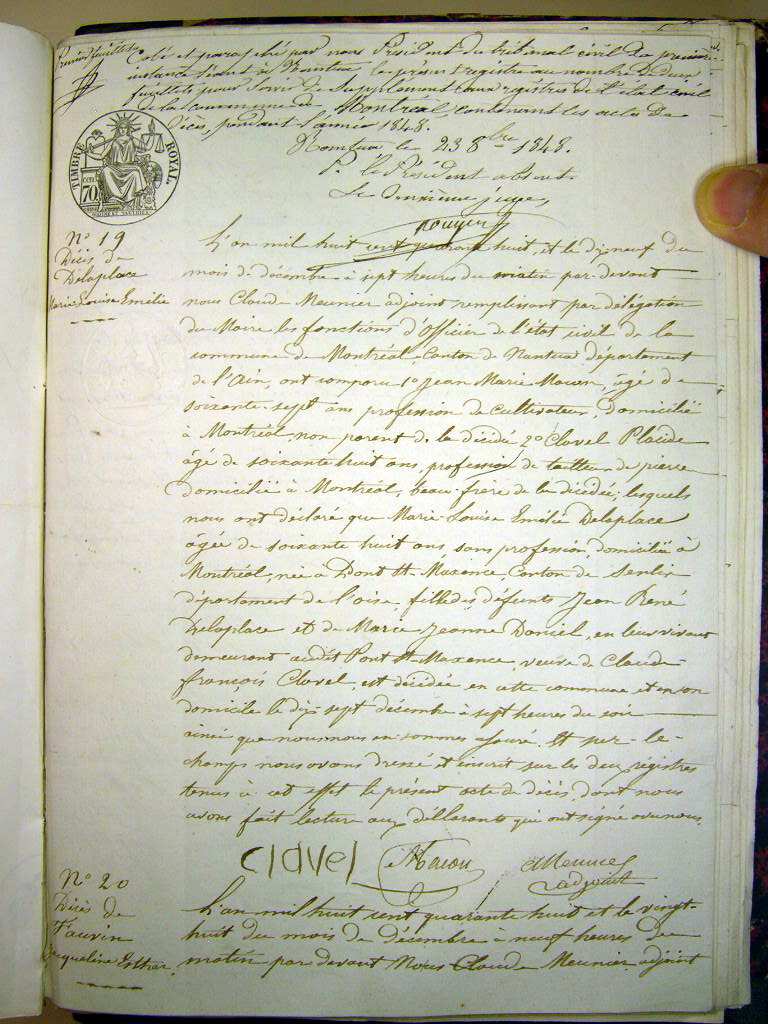 Premier feuillet
Coté et paraphé par nous Président du tribunal civil de première
instance séant à Nantua le présent registre au nombre de deux
feuillets pour servir de Supplément aux registres de l'état civil
de la commune de Montréal, contenant les actes de
Décès, pendant l'année 1848.
Nantua le 23 8bre 1848.
P. le Président absent
Le deuxième juge,
TIMBRE ROYAL.
70
N° 19
Décès de
Delaplace
Marie Louise Emélie
L'an mil huit cent quarante huit, et le dix neuf du
mois de décembre à sept heures du matin par devant
nous Claude Meunier adjoint remplissant par délégation
du Maire les fonctions d'Officier de l'état civil de la
commune de Montréal, Canton de Nantua département
de l'Ain, ont comparu 1° Jean Marie Macon, âgé de
soixante sept ans profession de cultivateur, domicilié
à Montréal non parent de la décédée, 2° Clavel Placide
âgé de soixante huit ans, profession de tailleur de pierre
domicilié à Montréal, beau-frère de la décédée; lesquels
nous ont déclaré que Marie Louise Emélie Delaplace
âgée de soixante huit ans, sans profession, domiciliée à
Montréal, née à Pont St Maxence, Canton de Senlis
département de l'oise, fille des défunts Jean René
Delaplace et de Marie Jeanne Daniel, en leur vivant
demeurant audit Pont St Maxence, veuve de Claude
françois Clavel, est décédée en cette commune et en son
domicile le dix sept décembre à sept heures du soir
ainsi que nous nous en sommes assuré. Et sur-le-
champ nous avons dressé et inscrit sur les deux registres
tenus à cet effet le présent acte de décès, dont nous
avons fait lecture aux déclarants qui ont signé avec nous.
Clavel Macon Meunier
adjoint
N° 20
Décès de
Tauvin
Jacqueline Esther
L'an mil huit cent quarante huit et le vingt-
huit du mois de décembre à neuf heures du
matin par devant Nous Claude Meunier adjoint